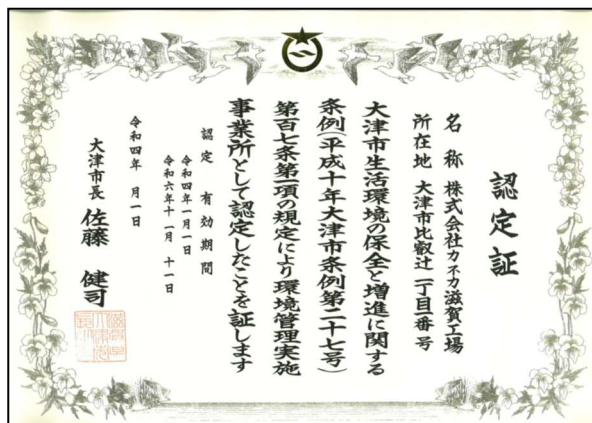 認定証
名称 株式会社カネカ滋賀工場
所在地 大津市比叡辻一丁目番号
大津市生活環境の保全と増進に関する
条例(平成十年大津市条例第二十七号)
第百七条第一項の規定により環境管理実施
事業所として認定したことを証します
認定 有効期間
令和四年一月一日
令和六年十一月十一日
令和四年 月一日
大津市長 佐藤 健司